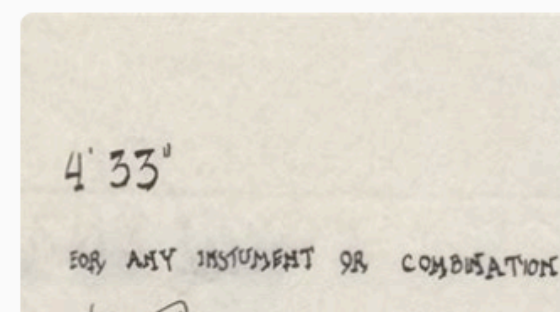 4' 33"
FOR ANY INSTUMENT OR COMBINATION